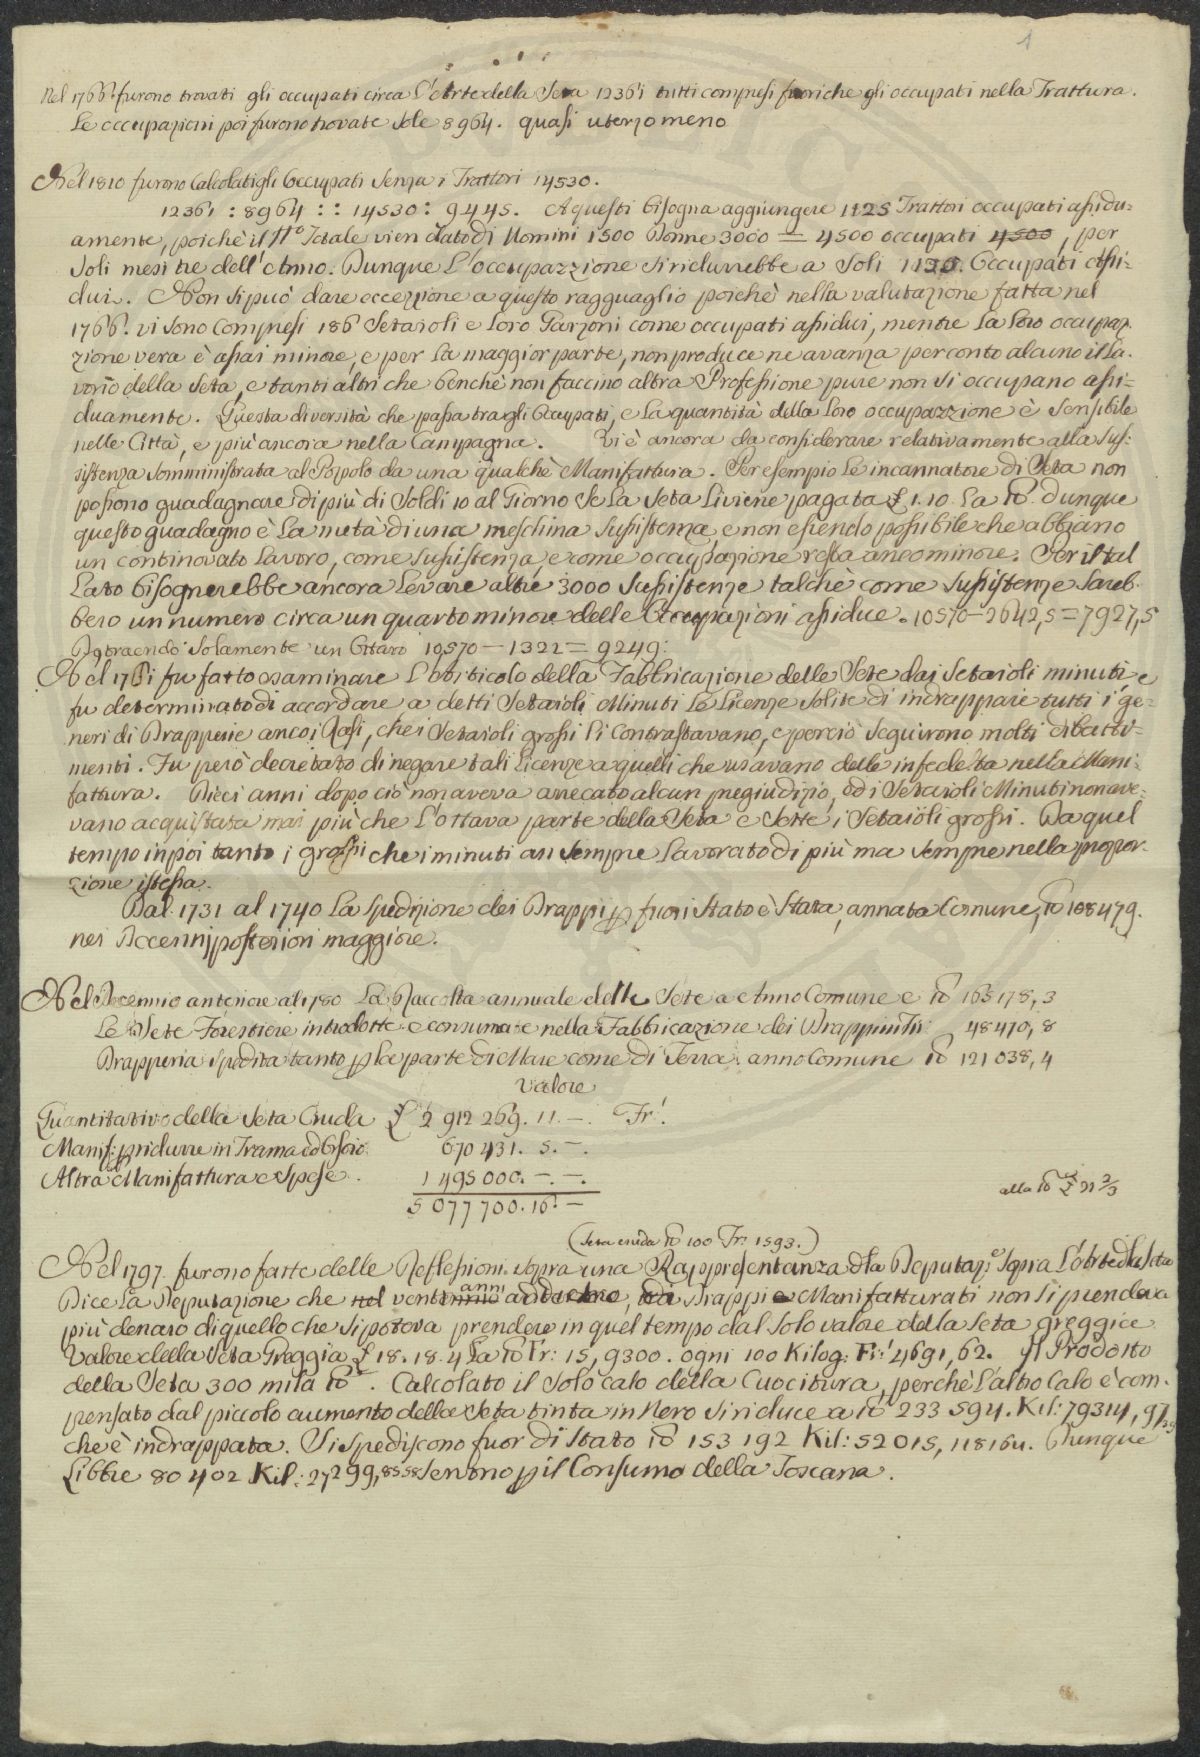 1
Nel 1766. furono trovati gli occupati circa L'Arte della Seta 12361 tutti compresi fuoriche gli occupati nella Trattura.
Le occupazioni poi furono trovate Sole 8964. quasi uterzo meno
Nel 1810 furono Calcolati gli Occupati Senza i Trattori 14530.
12361 : 8964 :: 14530 : 9445. A questi bisogna aggiungere 1125 Trattori occupati assidu-
amente, poichè il N.o Totale vien dato di Uomini 1500 Donne 3000 = 4500 occupati 4500, per
Soli mesi tre dell'Anno. Dunque L'occupazzione si ridurrebbe a Soli Occupati Assi-
dui. Non si può dare eccezzione a questo ragguaglio poichè nella valutazione fatta nel
1766. vi Sono Compresi 186 Setaioli e Loro Garzoni come occupati assidui, mentre La Loro occupaz-
zione vera è assai minore, e per La maggior parte, non produce ne avanza per conto alcuno il La-
vorio della Seta, e tanti altri che benchè non faccino altra Professione pure non Si occupano assi-
duamente. Questa diversità che passa tra gli Occupati, e La quantità della Loro occupazzione è Sensibile
nelle Città, e più ancora nella Campagna. Vi è ancora da considerare relativamente alla Sus-
sistenza Somministrata al Popolo da una qualchè Manifattura. Per esempio Le incannatore di Seta non
possono guadagnare di più di Soldi 10 al Giorno Se La Seta Li viene pagata £ 1.10. La lb. dunque
questo guadagno è La metà di una meschina Sussistenza, e non essendo possibile che abbiano
un continovato Lavoro, come Sussistenza, e come occupazione resta anco minore. Per il tal
Lato bisognerebbe ancora Levare altre 3000 Sussistenze talchè come Sussistenze Sareb-
bero un numero circa un quarto minore delle Occupazioni assidue. 10570 - 2642,5 = 7927,5
Detraendo Solamente un Ottavo 10570 - 1322 = 9249.
Nel fu fatto esaminare L'Articolo della Fabbricazione delle Sete dai Setaioli minuti e
fu determinato di accordare a detti Setaioli Minuti Le Licenze Solite di indrappare tutti i ge-
neri di Drapperie anco i Rasi, che i Setaioli grossi li Contrastavano, e perciò Seguirono molti dibatti-
menti. Fu però decretato di negare tali Licenze a quelli che usavano delle infedeltà nella Mani-
fattura. Dieci anni dopo ciò non aveva arrecato alcun pregiudizio, ed i Setaioli Minuti non ave-
vano acquistata mai più che L'ottava parte della Seta e Sette i Setaioli grossi. Da quel
tempo in poi tanto i grossi che i minuti an Sempre Lavorato di più ma Sempre nella propor-
zione istessa.
Dal 1731 al 1740 La Spedizione dei Drappi p fuori Stato è Stata, annata Comune, lb 108479.
nei Decenni posteriori maggiore.
Nel Decennio anteriore al 1780 La Raccolta annuale delle Sete a Anno Comune e lb 165178,3
Le Sete Forestiere introdotte e consumate nella Fabbricazione dei Drappi 48410,8
Drapperia Spedita tanto p la parte di Mare come di Terra. anno Comune lb 121038,4
Valore
Quantitativo della Seta Cruda £ 2 912 269. 11. -. Fr.
Manif: p ridurre in Trama ed Orsoio 670 431. 5. -.
Altra Manifattura e Spese. 1 495 000. -. -.
5 077 700. 16. -
alla lb £ 21 2/3
(Seta cruda lb 100 Fr. 1593.)
Nel 1797. furono fatte delle Reflessioni Sopra una Rappresentanza dla Deputaz.e Sopra L'Arte dla Seta
Dice La Deputazione che nel vent anni addietro, Drappi e Manifatturati non Si prendeva
più denaro di quello che Si poteva prendere in quel tempo dal Solo valore della Seta greggia.
Valore della Seta Greggia £ 18. 18. 4 La lb Fr: 15,9300. ogni 100 Kilog: Fr: 4691,62. Il Prodotto
della Seta 300 mila lb. Calcolato il Solo calo della Cuocitura, perchè L'altro Calo è com-
pensato dal piccolo aumento della Seta tinta in Nero Si riduce a lb 233 594. Kil: 79314,97
che è indrappata. Si Spediscono fuor di Stato lb 153 192 Kil: 52015, Dunque
Libbre 80 402 Kil: 27299,8558 Servono p il Consumo della Toscana.